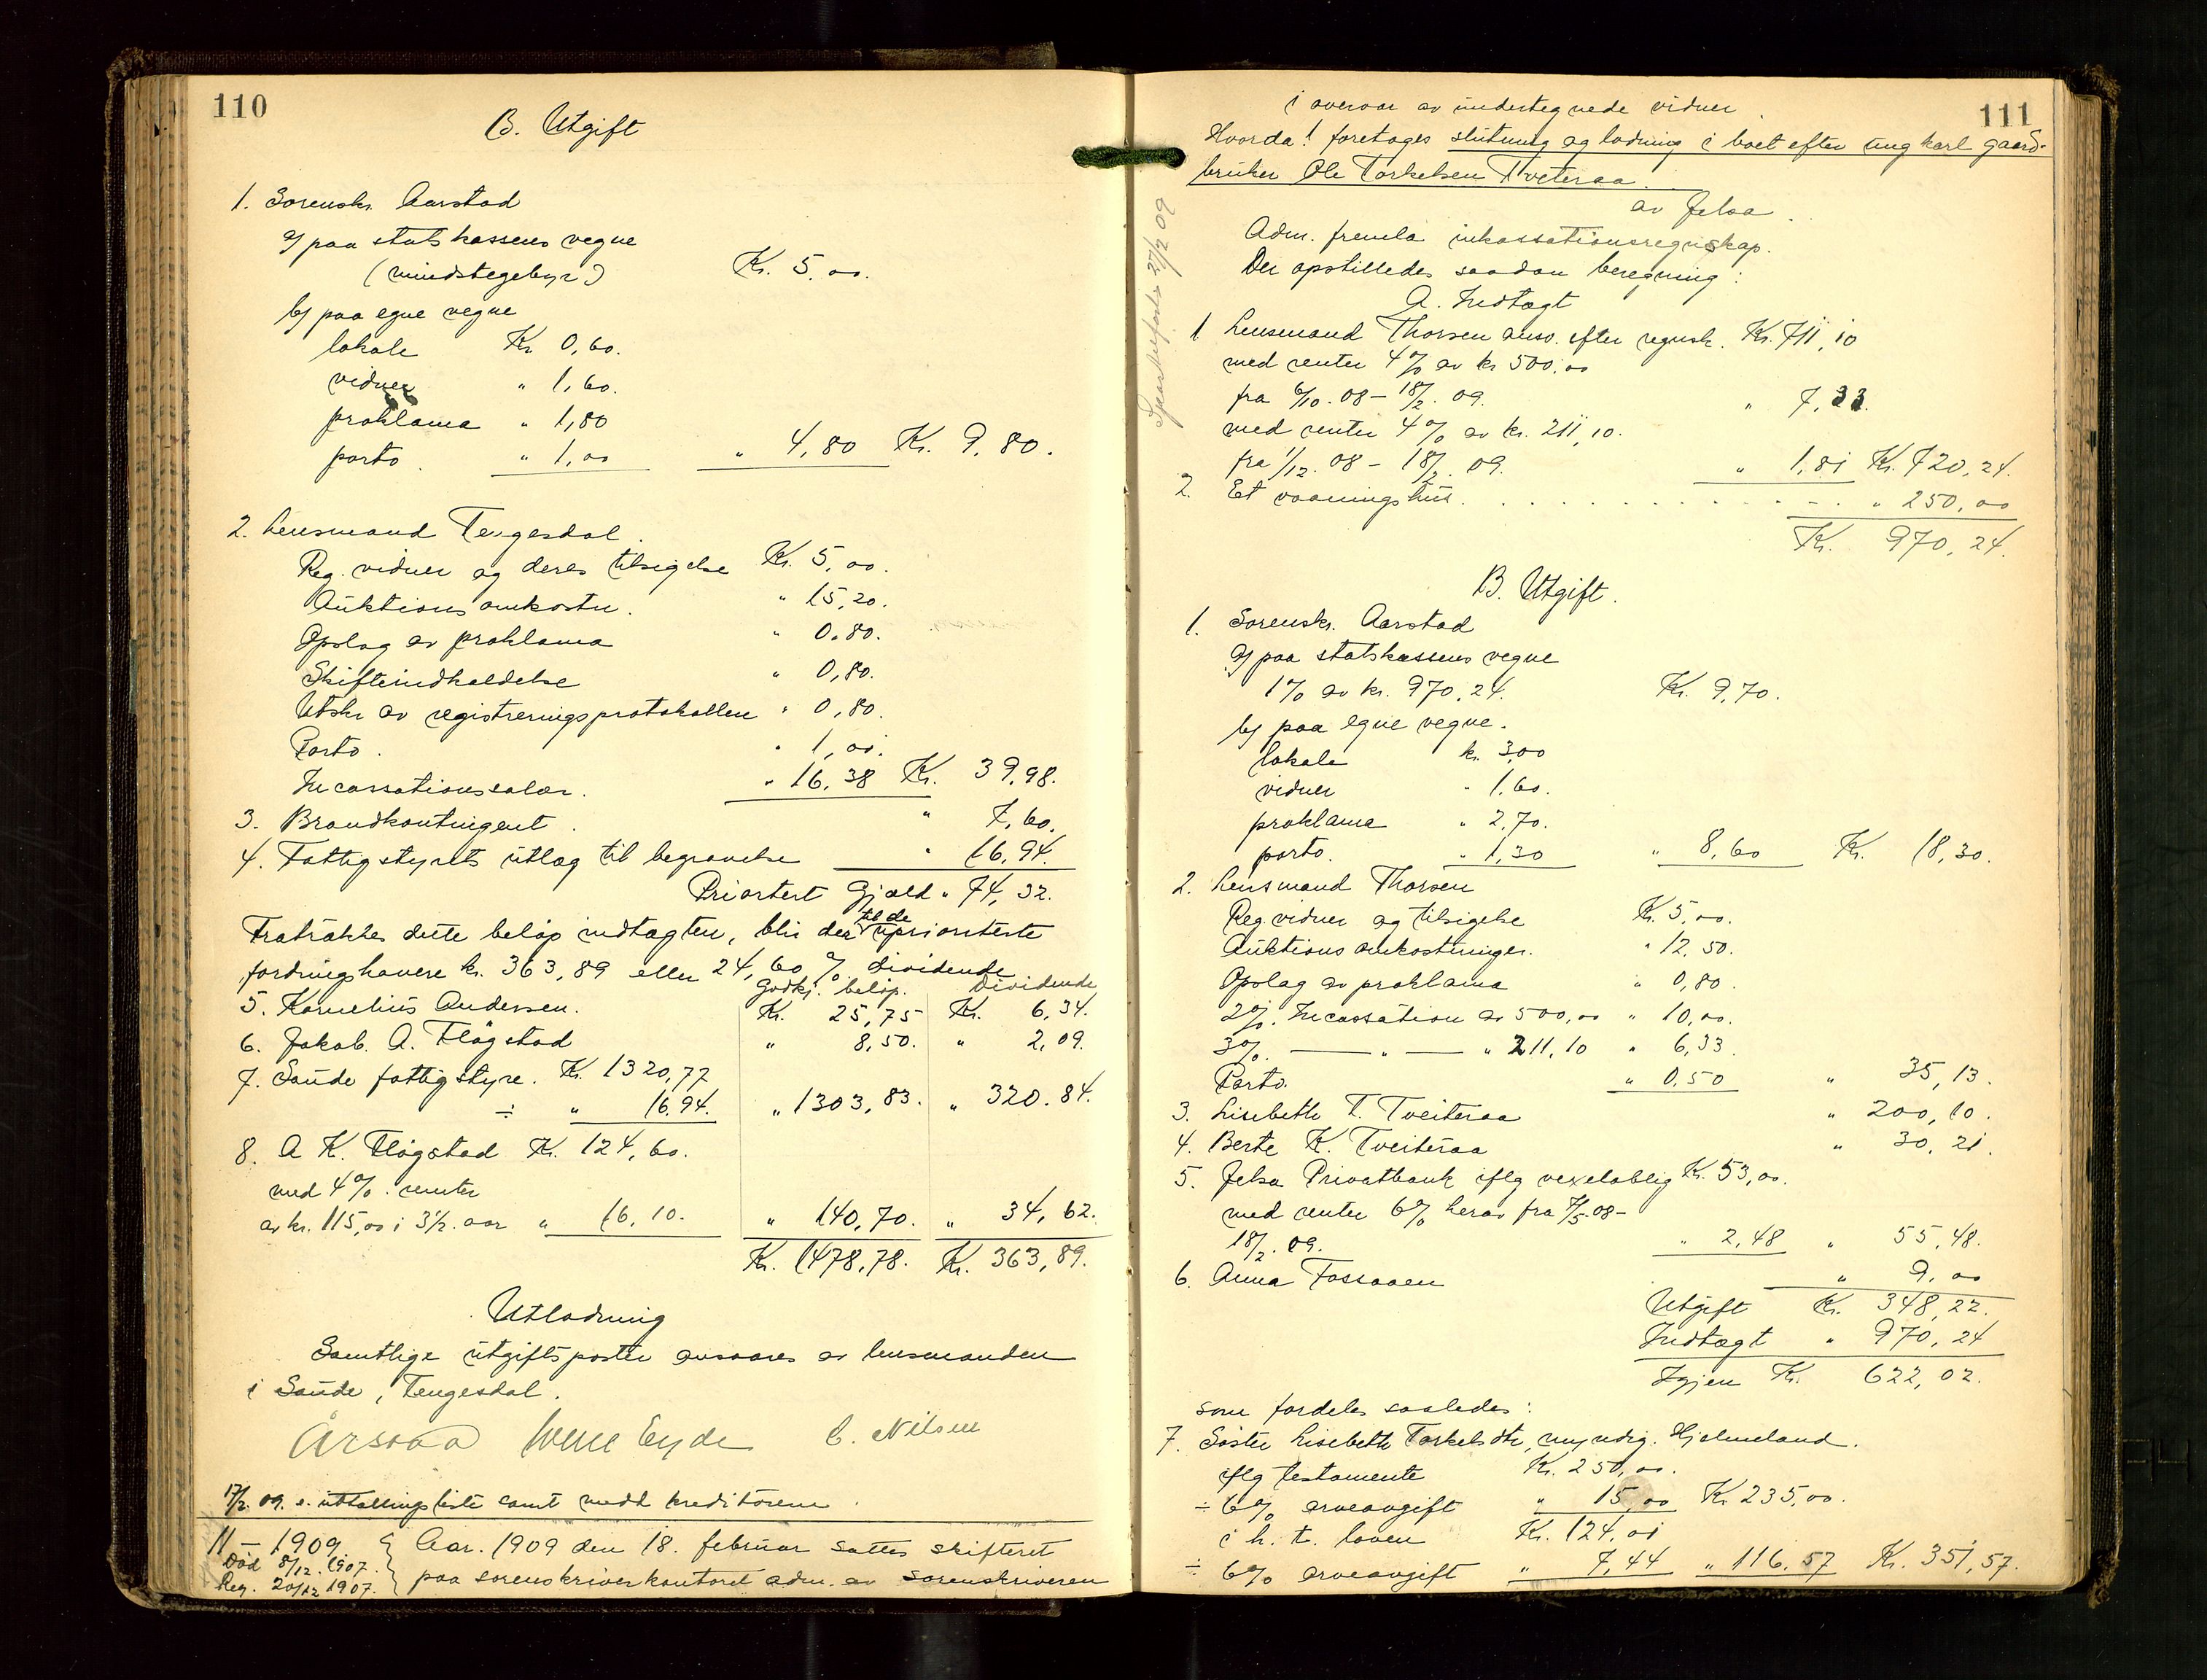 110
B. Utgift
1. Sorenskr. Aarstad
a/ paa statskassens vegne
(mindstegebyr) Kr. 5,00.
b/ paa egne vegne
lokale Kr 0,60.
vidner " 1,60.
proklama " 1,80
porto. " 1,00 " 4,80 Kr. 9,80.
2. Lensmand Tengesdal.
Reg. vidner og deres tilsigelse Kr. 5,00.
Auktionsomkostn. " 15,20.
Opslag av proklama " 0,80.
Skifteindkaldelse " 0,80.
Utskr av registreringsprotokollen " 0,80.
Porto. " 1,00.
Incassationssalær. " 16,38 Kr. 39,98.
3. Brandkontingent. " 7,60.
4. Fattigstyrets utlæg til begravelse " 16,94.
Priortert Gjæld " 74,32.
Fratrækkes dette beløp indtægten, blir der til de upriorterte
fordringshavere kr. 363,89 eller 24,60 % dividende
Godkj. beløp. Dividende
5. Kornelius Andersen. Kr. 25,75 Kr. 6,34.
6. Jakob A. Fløgstad " 8,50. " 2,09.
7. Saude fattigstyre. Kr. 1320,77
÷ " 16,94. " 1303,83. " 320.84.
8. A K. Fløgstad Kr. 124,60.
med 4%. renter
av kr. 115,00 i 3½. aar " 16,10. " 140,70. " 34,62.
Kr. 1478,78. Kr. 363,89.
Utlodning
Samtlige utgiftsposter ansvares av lensmanden
i Saude, Tengesdal.
Arstad Eyde C. Nilsen
17/2 09. s. uttællingsliste samt medt kreditorene.
11 – 1909 Aar. 1909 den 18. februar sattes skifteret
Død 8/12. 1907.
Reg. 20/12 1907. paa sorenskriverkontoret adm. av sorenskriveren
111
i overvær av undertegnede vidner
Hvorda! foretoges slutning og lodning i boet efter ungkarl gaard-
bruker Ole Torkelsen Tveteraa.
av Jelsa.
27/2 09
Adm. fremla inkassationsregnskap.
Der opstilledes saadan beregning:
A. Indtægt
1 Lensmand Thorsen ansv. efter regnsk. Kr. 711,10
med renter 4% av kr 500,00
fra 6/10. 08 – 18/2. 09. " 7,33.
med renter 4% av kr. 211,10.
fra 1/12. 08 – 18/2. 09. " 1,81 Kr. 720,24.
2. Et vaaningshus. " 250,00
Kr. 970,24.
B. Utgift.
1. Sorenskr. Aarstad
a/ paa statskassens vegne
1% av kr. 970,24. Kr. 9,70.
b/ paa egne vegne.
lokale kr. 3,00
vidner " 1,60.
proklama " 2,70.
porto. " 1,30 " 8,60 Kr. 18,30.
2. Lensmand Thorsen
Reg. vidner og tilsigelse Kr. 5,00.
Auktionsomkostninger. " 12,50.
Opslag av proklama " 0,80.
2%. Incassation av 500,00 " 10,00.
3%. — " — " 211,10 " 6,33.
Porto. " 0,50 " 35,13.
3. Lisebeth T. Tveiteraa " 200,10.
4. Berte K. Tveiteraa " 30,21.
5. Jelsa Privatbank iflg vexeloblig Kr. 53,00.
med renter 6% herav fra 7/5. 08 –
18/2. 09. " 2,48 " 55,48.
6. Anna Fossaaen " 9,00
Utgift Kr. 348,22.
Indtægt " 970,24
Igjen Kr. 622,02.
som fordeles saaledes:
7. Søster Lisebeth Torkelsdtr, myndig. Hjelmeland.
iflg testamente Kr. 250,00.
÷ 6% arveavgift " 15,00 Kr 235,00.
i h. t. loven Kr. 124,01
÷ 6% arveavgift " 7,44 " 116,57 Kr. 351,57.